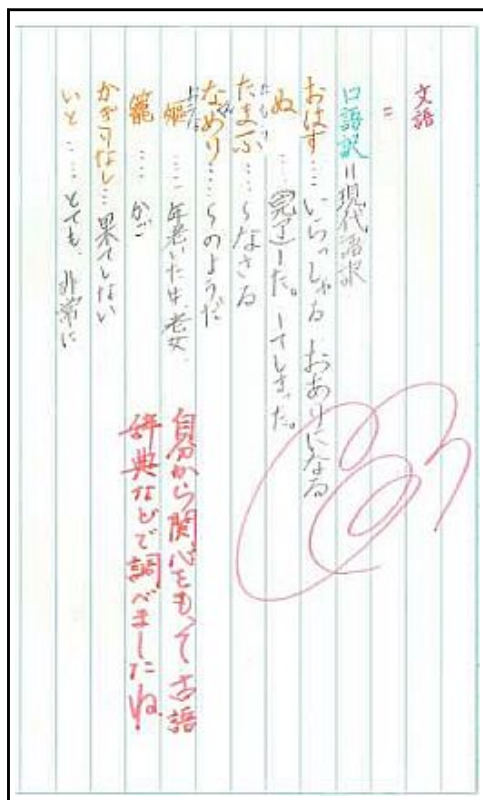 文語
=
口語訳=現代語訳
おはす…いらっしゃる おありになる
ぬ……完了ーた。ーてしまった。
たまふ…〜なさる
なめり…〜のようだ
嫗……年老いた女、老女、
籠……かご
かぎりなし…果てしない
いと……とても、非常に
自分から関心をもって古語
辞典などで調べましたね